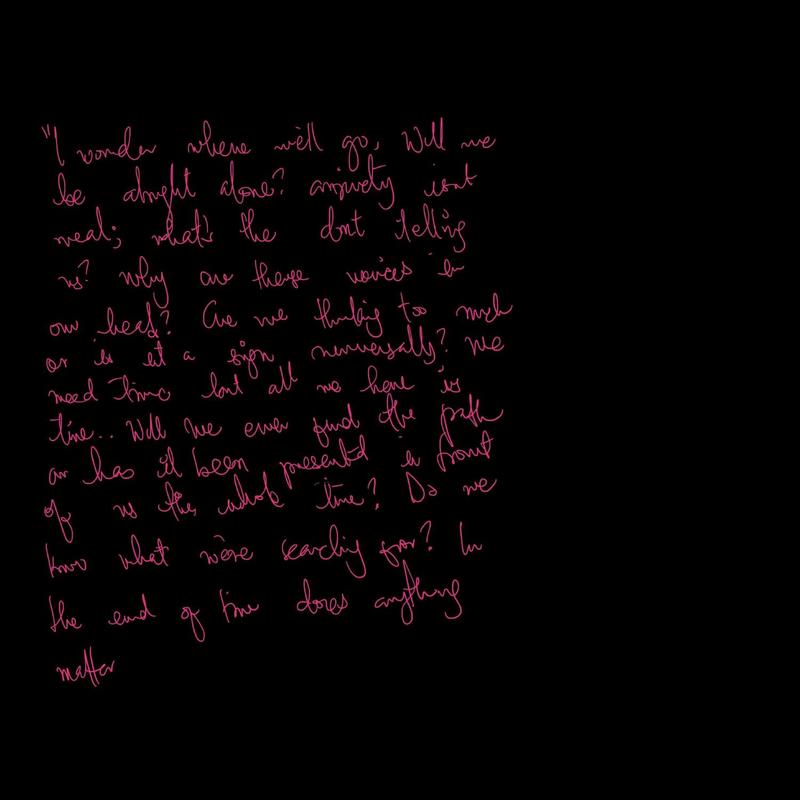 "I wonder where we'll go, Will we
be alright alone? anxiety isnt
real; what's the dont telling
us? Why are these voices in
our head? Are we thinking too much
or is it a sign universally? We
need Time but all we have is
time.. Will we ever find the path
or has it been presented in front
of us the whole time? Do we
know what we're searching for? In
the end of time does anything
matter